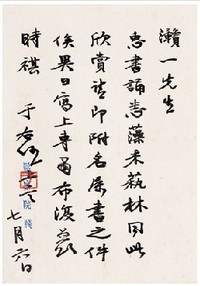 瀨一先生
惠書誦悉藻采藝林同此
欣賞請即附名屬書之件
俟異日寫上專函布復並
時祺
于右任
七月六日